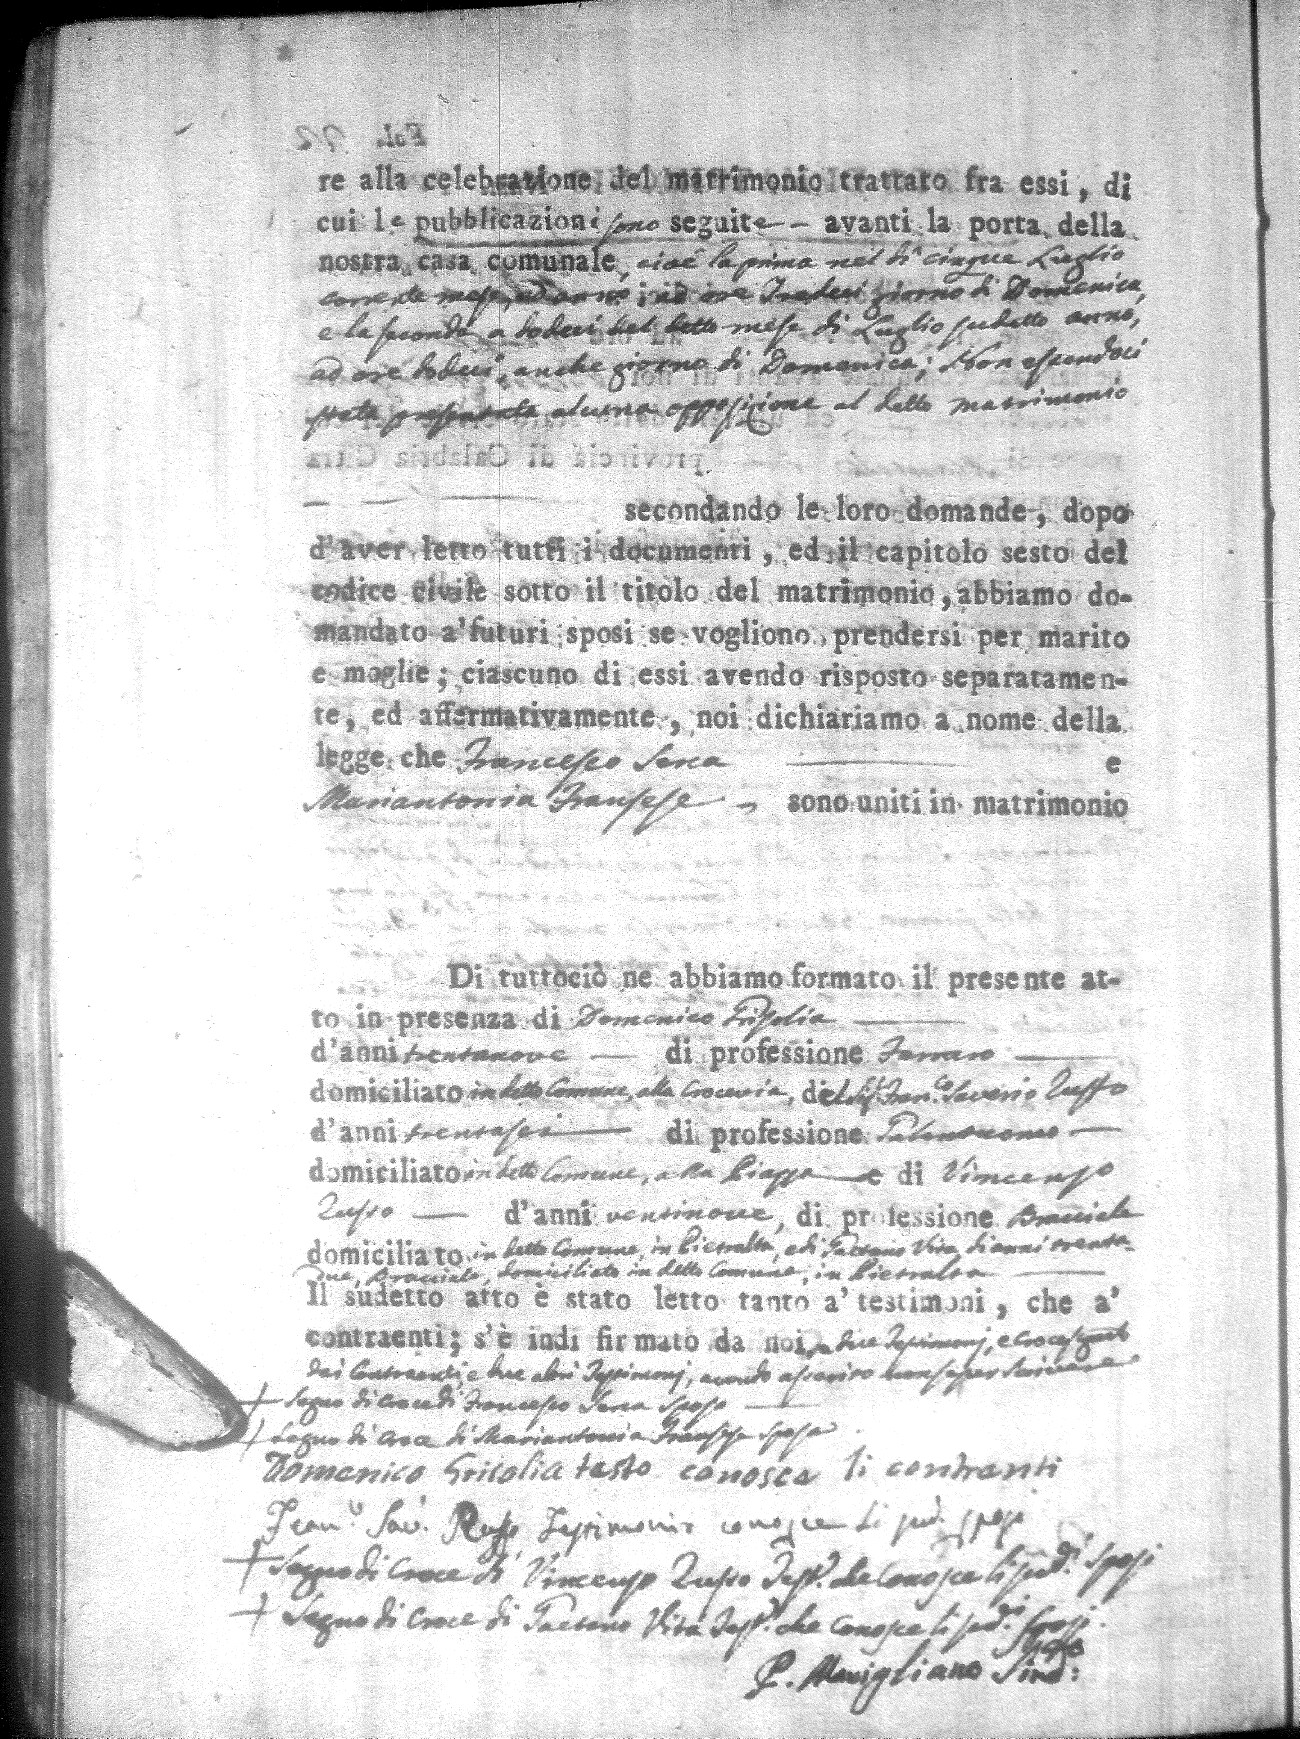 re alla celebrazione del matrimonio trattato fra essi, di
cui le pubblicazioni sono seguite – avanti la porta della
nostra casa comunale, cioè la prima nel dì cinque Luglio
corrente mese, ed anno ad ore giorno di Domenica,
e la seconda a dodeci del detto mese di Luglio sudetto anno,
ad ore dodeci, anche giorno di Domenica; Non essendoci
stata presentata alcuna opposizione al detto matrimonio
secondando le loro domande, dopo
d'aver letto tutti i documenti, ed il capitolo sesto del
codice civile sotto il titolo del matrimonio, abbiamo do-
mandato a'futuri sposi se vogliono prendersi per marito
e moglie; ciascuno di essi avendo risposto separatamen-
te, ed affermativamente, noi dichiariamo a nome della
legge che Francesco e
Mariantonia sono uniti in matrimonio
Di tuttociò ne abbiamo formato il presente at-
to in presenza di Domenico Grisolia
d'anni trentanove — di professione Ferraro —
domiciliato in detto Comune, alla Crocevia, di Saverio Russo
d'anni trentasei — di professione Galantuomo —
domiciliato in detto Comune, alla Piazza e di Vincenzo
Russo — d'anni ventinove, di professione Bracciale
domiciliato in detto Comune, in Pietralta, e di Gaetano Vita, di anni trenta-
due, Bracciale, domiciliato in detto Comune, in Pietralta —
Il sudetto atto è stato letto tanto a' testimoni, che a'
contraenti; s'è indi firmato da noi, due Testimonj, e Crocesegnato
dai Contraenti, e due altri Testimonj, avendo asserito non saper scrivere
+ Segno di croce di Francesco Sposo —
+ Segno di Croce di Mariantonia Sposa
Domenico Grisolia testo conosce li contranti
Sav. Russo Testimonio conosce li sud. sposi
+ Segno di Croce di Vincenzo Russo Test. che conosce li sud.i Sposi
+ Segno di Croce di Gaetano Vita Test. che conosce li sud.i Sposi
P. Sind: